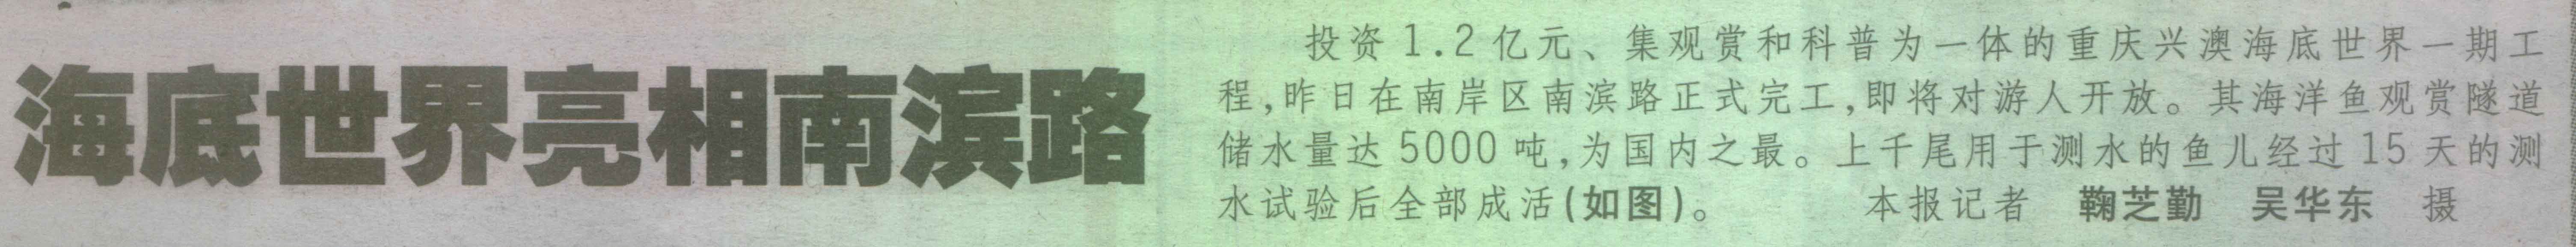 海底世界亮相南滨路
投资1.2亿元、集观赏和科普为一体的重庆兴澳海底世界一期工
程,昨日在南岸区南滨路正式完工,即将对游人开放。其海洋鱼观赏隧道
储水量达5000吨,为国内之最。上千尾用于测水的鱼儿经过15天的测
水试验后全部成活(如图)。 本报记者 鞠芝勤 吴华东 摄